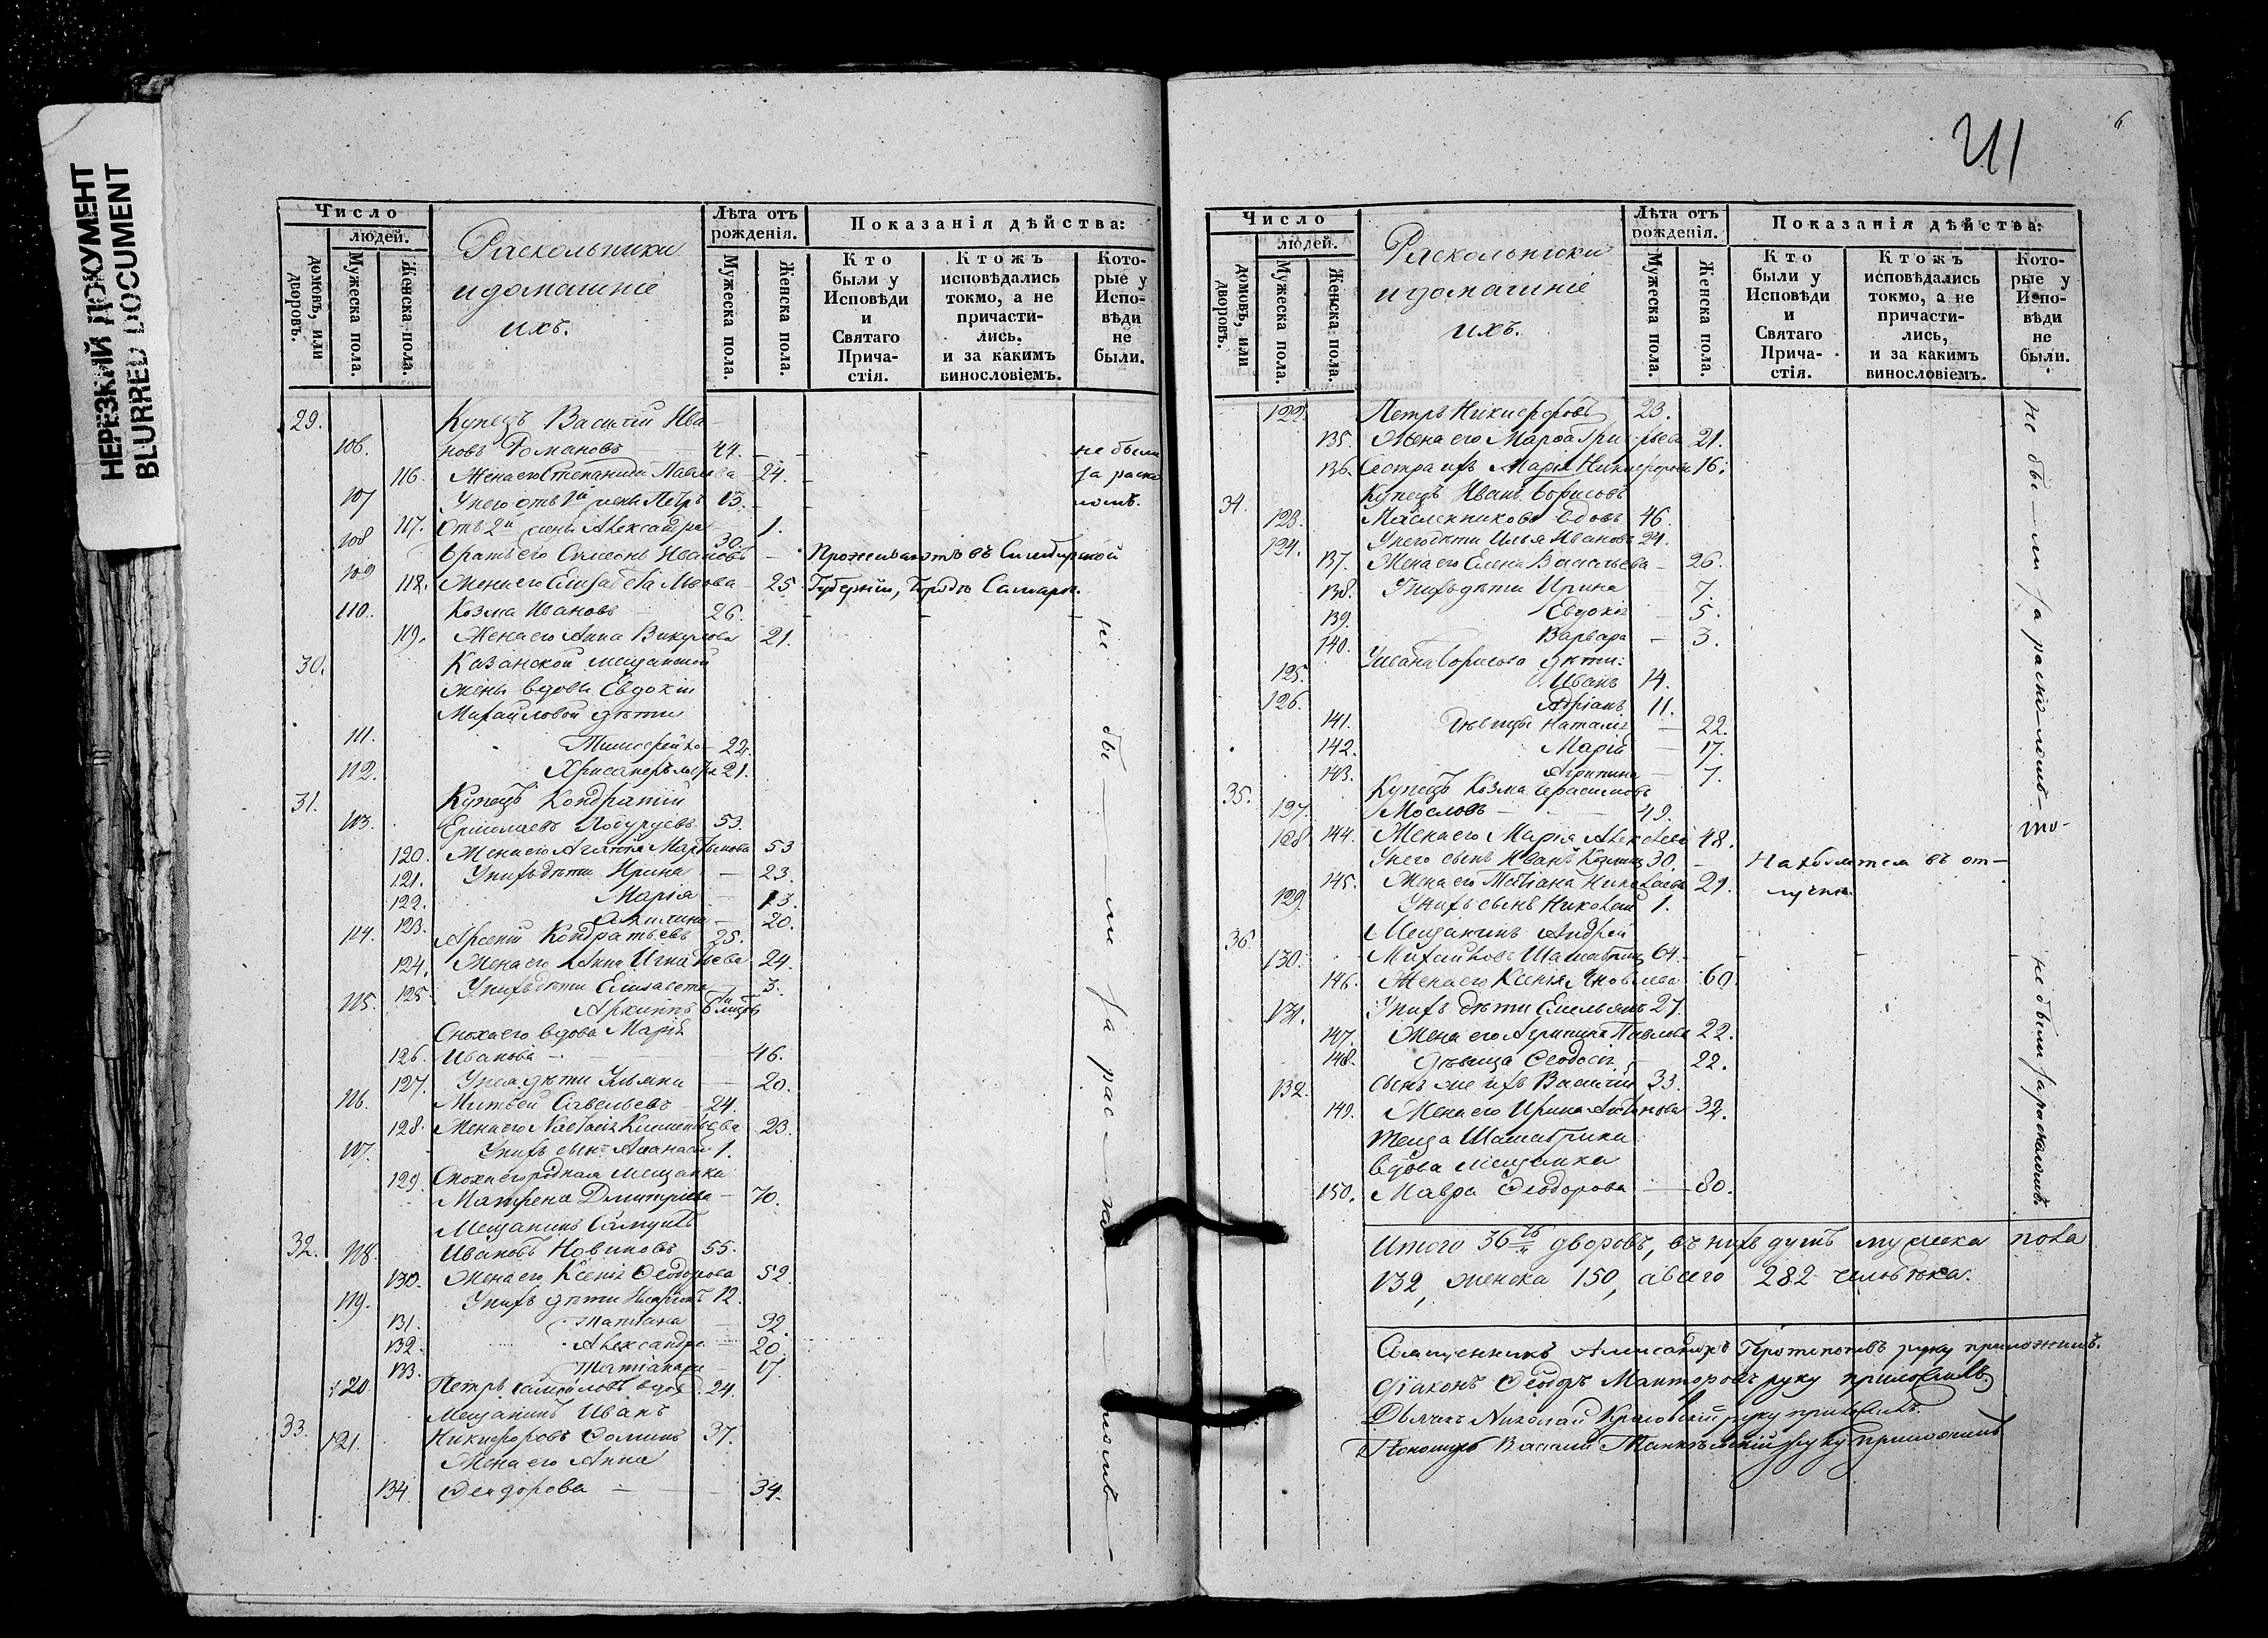 НЕРЕЗКИЙ ДОКУМЕНТ
BLURRED DOCUMENT
Число
людей.
домовъ, или дворовъ.
Мужеска пола.
Женска пола.
Раскольники
и домашніе
ихъ.
Лѣта отъ рожденія.
Мужеска пола.
Женска пола.
Показанія дѣйства:
Кто были у Исповѣди и Святаго Прича-стія.
Ктожъ исповѣдались токмо, а не причасти-лись, и за какимъ винословіемъ.
Кото-рые у Испо-вѣди не были.
29. Купецъ Василій Ива
106. новъ Романовъ 44. не были
116. Жена его Степанида Павлова 24. за раско
107 У него отъ 1й жены Петръ 13. ломъ.
117. Отъ 2й жены Александра 1.
108 Братъ его Симеонъ Ивановъ 30. Проживаютъ въ Симбирской
109 118. Жена его Елизавета Львова 25 Губерніи, Городѣ Самарѣ.
110. Козма Ивановъ 26.
119. Жена его Анна Викулова 21.
30. Казанской мещанской
жены вдовы Евдокіи
Михайловой дѣти
111. Тимофей 22.
112. Хрисанфъ 21.
31. Купецъ Кондратій
113. Ермолаевъ 53.
120. Жена его Агафія Мартынова 53
121. У нихъ дѣти Ирина 23.
122. Марія 13.
123. Акилина 20.
114. Арсеній Кондратьевъ 25.
124. Жена его Анна Игнатьева 24.
125. У нихъ дѣти Елизавета 3.
115. Архиппъ 6
Сноха его вдова Марія
126. Иванова 46.
127. У нея дѣти Ульяна 20.
116. Матвей Савельевъ 24.
128. Жена его Наталія 23.
117. У нихъ сынъ Афанасій 1.
129. Сноха его родная мещанка
Матрена Дмитріева 70.
Мещанинъ Самуилъ
32. 118. Ивановъ Новиковъ 55.
130. Жена его Ксенія Феодорова 52.
119. У нихъ дѣти 12.
131. Татіана 32.
132. Александра 20.
133. Татіана 17.
120 Петръ Самойловъ вдов 24.
Мещанинъ Иванъ
33. 121. Никифоровъ Фоминъ 37.
Жена его Анна
134 Феодорова 34.
не бы — ли за рас — ко — ломъ —
6
Число
людей.
домовъ, или дворовъ.
Мужеска пола.
Женска пола.
Раскольники
и домашніе
ихъ.
Лѣта отъ рожденія.
Мужеска пола.
Женска пола.
Показанія дѣйства:
Кто были у Исповѣди и Святаго Прича-стія.
Ктожъ исповѣдались токмо, а не причасти-лись, и за какимъ винословіемъ.
Кото-рые у Испо-вѣди не были.
122. Петръ Никифоровъ 23.
135. Жена его Марфа Григорьева 21.
136. Сестра ихъ Марія Никифорова 16.
34. Купецъ Иванъ Борисовъ
123. Масленниковъ вдовъ 46.
124. У него дѣти Илья Ивановъ 24.
137. Жена его Елена Васильева 26.
138. У нихъ дѣти Ирина 7.
139. Евдокія 5.
140. Варвара 3.
У Ивана Борисова дѣти:
125. Иванъ 14.
126. Адріанъ 11.
141. Дѣвицы Наталія 22.
142. Марія 17.
143. Агрипина 7.
35. Купецъ Козма Герасимовъ
127. Мословъ 49.
128 144. Жена его Марія Алексѣева 48.
У него сынъ Иванъ Козминъ 30 Находится въ от—
145. Жена его Татіана Николаева 29. лучкѣ.
129. У нихъ сынъ Николай 1.
36. Мещанинъ Андрей
130. Михайловъ Шашабринъ 64.
146. Жена его Ксенія Яковлева 60.
131. У нихъ дѣти Емельянъ 27.
147. Жена его Агрипина Павлова 22.
148. Дѣвица Феодосія 22.
132. Сынъ же ихъ Василій 33.
149. Жена его Ирина 32.
Теща Шашабрина
вдова мещанка
150. Мавра Феодорова 80.
не бы — ли за раско — ломъ —
не были за расколомъ.
Итого 36ть дворовъ, въ нихъ душъ мужеска пола
132, женска 150, а всего 282 человѣка.
Священникъ Александръ Протопоповъ руку приложилъ.
Діаконъ Феодоръ руку приложилъ
Дьячекъ Николай руку приложилъ.
Пономарь Василій руку приложилъ